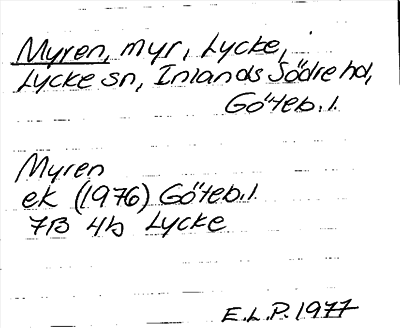 Myren, myr, Lycke,
Lycke sn, Inlands Södre hd,
Göteb. l.
Myren
ek (1976) Göteb. l.
7B 4b Lycke
E.L.P. 1977